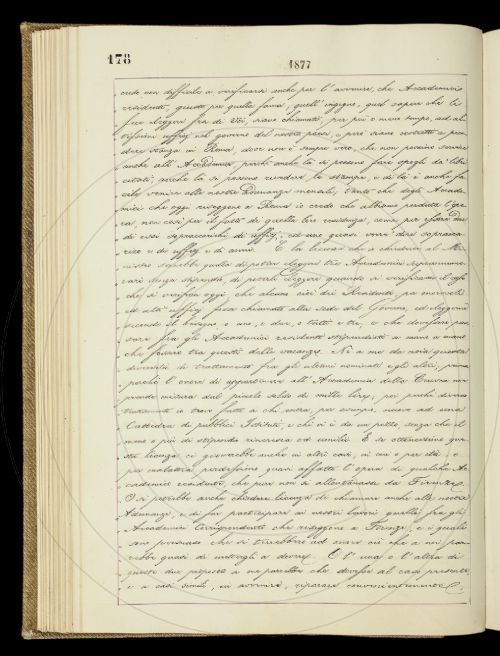 178
1877
crede non difficile a verificarsi anche per l'avvenire, che Accademici
residenti, giusto per quella fama, quell'ingegno, quel sapere che li
fece eleggere fra di Voi, siano chiamati, per più o meno tempo, ad al-
tissimi ufficj nel governo del nostro paese, e però siano costretti a pren-
dere stanza in Roma: dove non è sempre vero, che non possano servire
anche all'Accademia perché anche là si possono fare spogli da' libri
citati, anche là si possono rivedere le stampe, e di là è anche fa-
cile venire alle nostre Adunanze mensili; tanto che degli Accade-
mici che oggi risieggono a Roma io credo che abbiamo perduta l'ope-
ra, non così per il fatto di quella loro residenza, come per essere
di essi sopraccarichi di ufficj, ed uno quasi vorrei dire sopracca-
rico e di ufficj e di anni. E la licenza che si chiederà al Mi-
nistro sarebbe quella di poter eleggere tre Accademici soprannume-
rarj senza stipendio, di poterli eleggere quando si verificasse il caso
che si verifica oggi, che alcuni cioè dei Residenti, per onorevoli
ed alti ufficj fosse chiamato alla sede del Governo, ed eleggerne
secondo il bisogno o uno, o due, o tutti e tre, e che dovessero pas-
sare fra gli Accademici residenti stipendiati a mano a mano
che fra questi delle vacanze. Nè a me da noia questa
diversità di trattamento fra gli ultimi nominati e gli altri, prima
perché l'onore di appartenere all'Accademia della Crusca non
prende misura dal piccolo soldo di mille lire; poi perché diverso
trattamento io trovo fatto a chi entra, per esempio, nuovo ad una
Cattedra di pubblici Istituti, e chi vi è da un pezzo, senza che il
meno o più di stipendio rincresca od umilii. E se ottenessimo que-
sta licenza ci gioverebbe anche in altri casi, in cui o per età, o
per malattia perdessimo quasi affatto l'opera di qualche Ac-
cademico residente, che pur non si allontanasse da Firenze.
O si potrebbe anche chiedere licenza di chiamare anche alle nostre
Adunanze, e di far partecipare ai nostri lavori quelli fra gli
Accademici Corrispondenti che risieggono a Firenze, e i quali
sono persuaso che si terrebbero ad onore ciò che a noi par-
rebbe quasi di imporgli a dovere. E l'una o l'altra di
queste due proposte a me parrebbe che dovesse al caso presente
e a casi simili, in avvenire, riparare convenientemente.